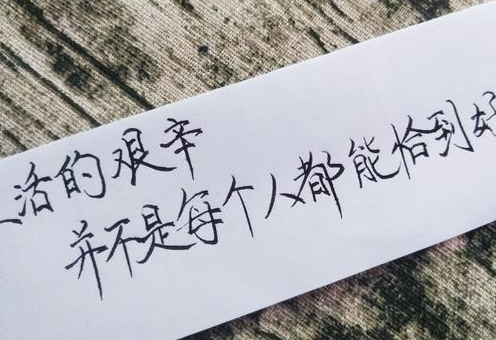 活的艰辛
并不是每个人都能恰到好